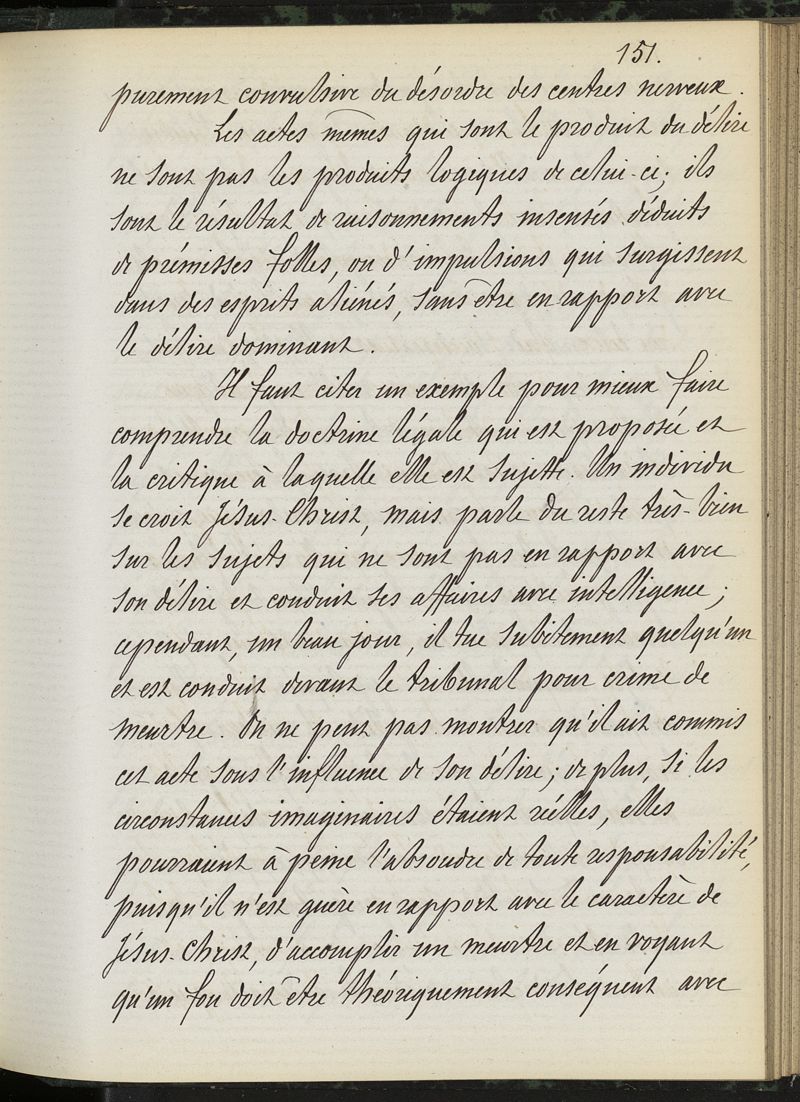 151.
purement convulsive du désordre des centres nerveux.
Les actes mêmes qui sont le produit du délire
ne sont pas les produits logiques de celui-ci; ils
sont le résultat de raisonnements insensés déduits
de prémisses folles, ou d'impulsions qui surgissent
dans des esprits aliénés, sans être en rapport avec
le délire dominant.
Il faut citer un exemple pour mieux faire
comprendre la doctrine légale qui est proposée et
la critique à laquelle elle est sujette. Un individu
se croit Jésus-Christ, mais parle du reste très-bien
sur les sujets qui ne sont pas en rapport avec
son délire et conduit ses affaires avec intelligence;
cependant, un beau jour, il tue subitement quelqu'un
et est conduit devant le tribunal pour crime de
meurtre. On ne peut pas montrer qu'il ait commis
cet acte sous l'influence de son délire; de plus, si les
circonstances imaginaires étaient réelles, elles
pourraient à peine l'absoudre de toute responsabilité,
puisqu'il n'est guère en rapport avec le caractère de
Jésus-Christ, d'accomplir un meurtre et en voyant
qu'un fou doit être théoriquement conséquent avec